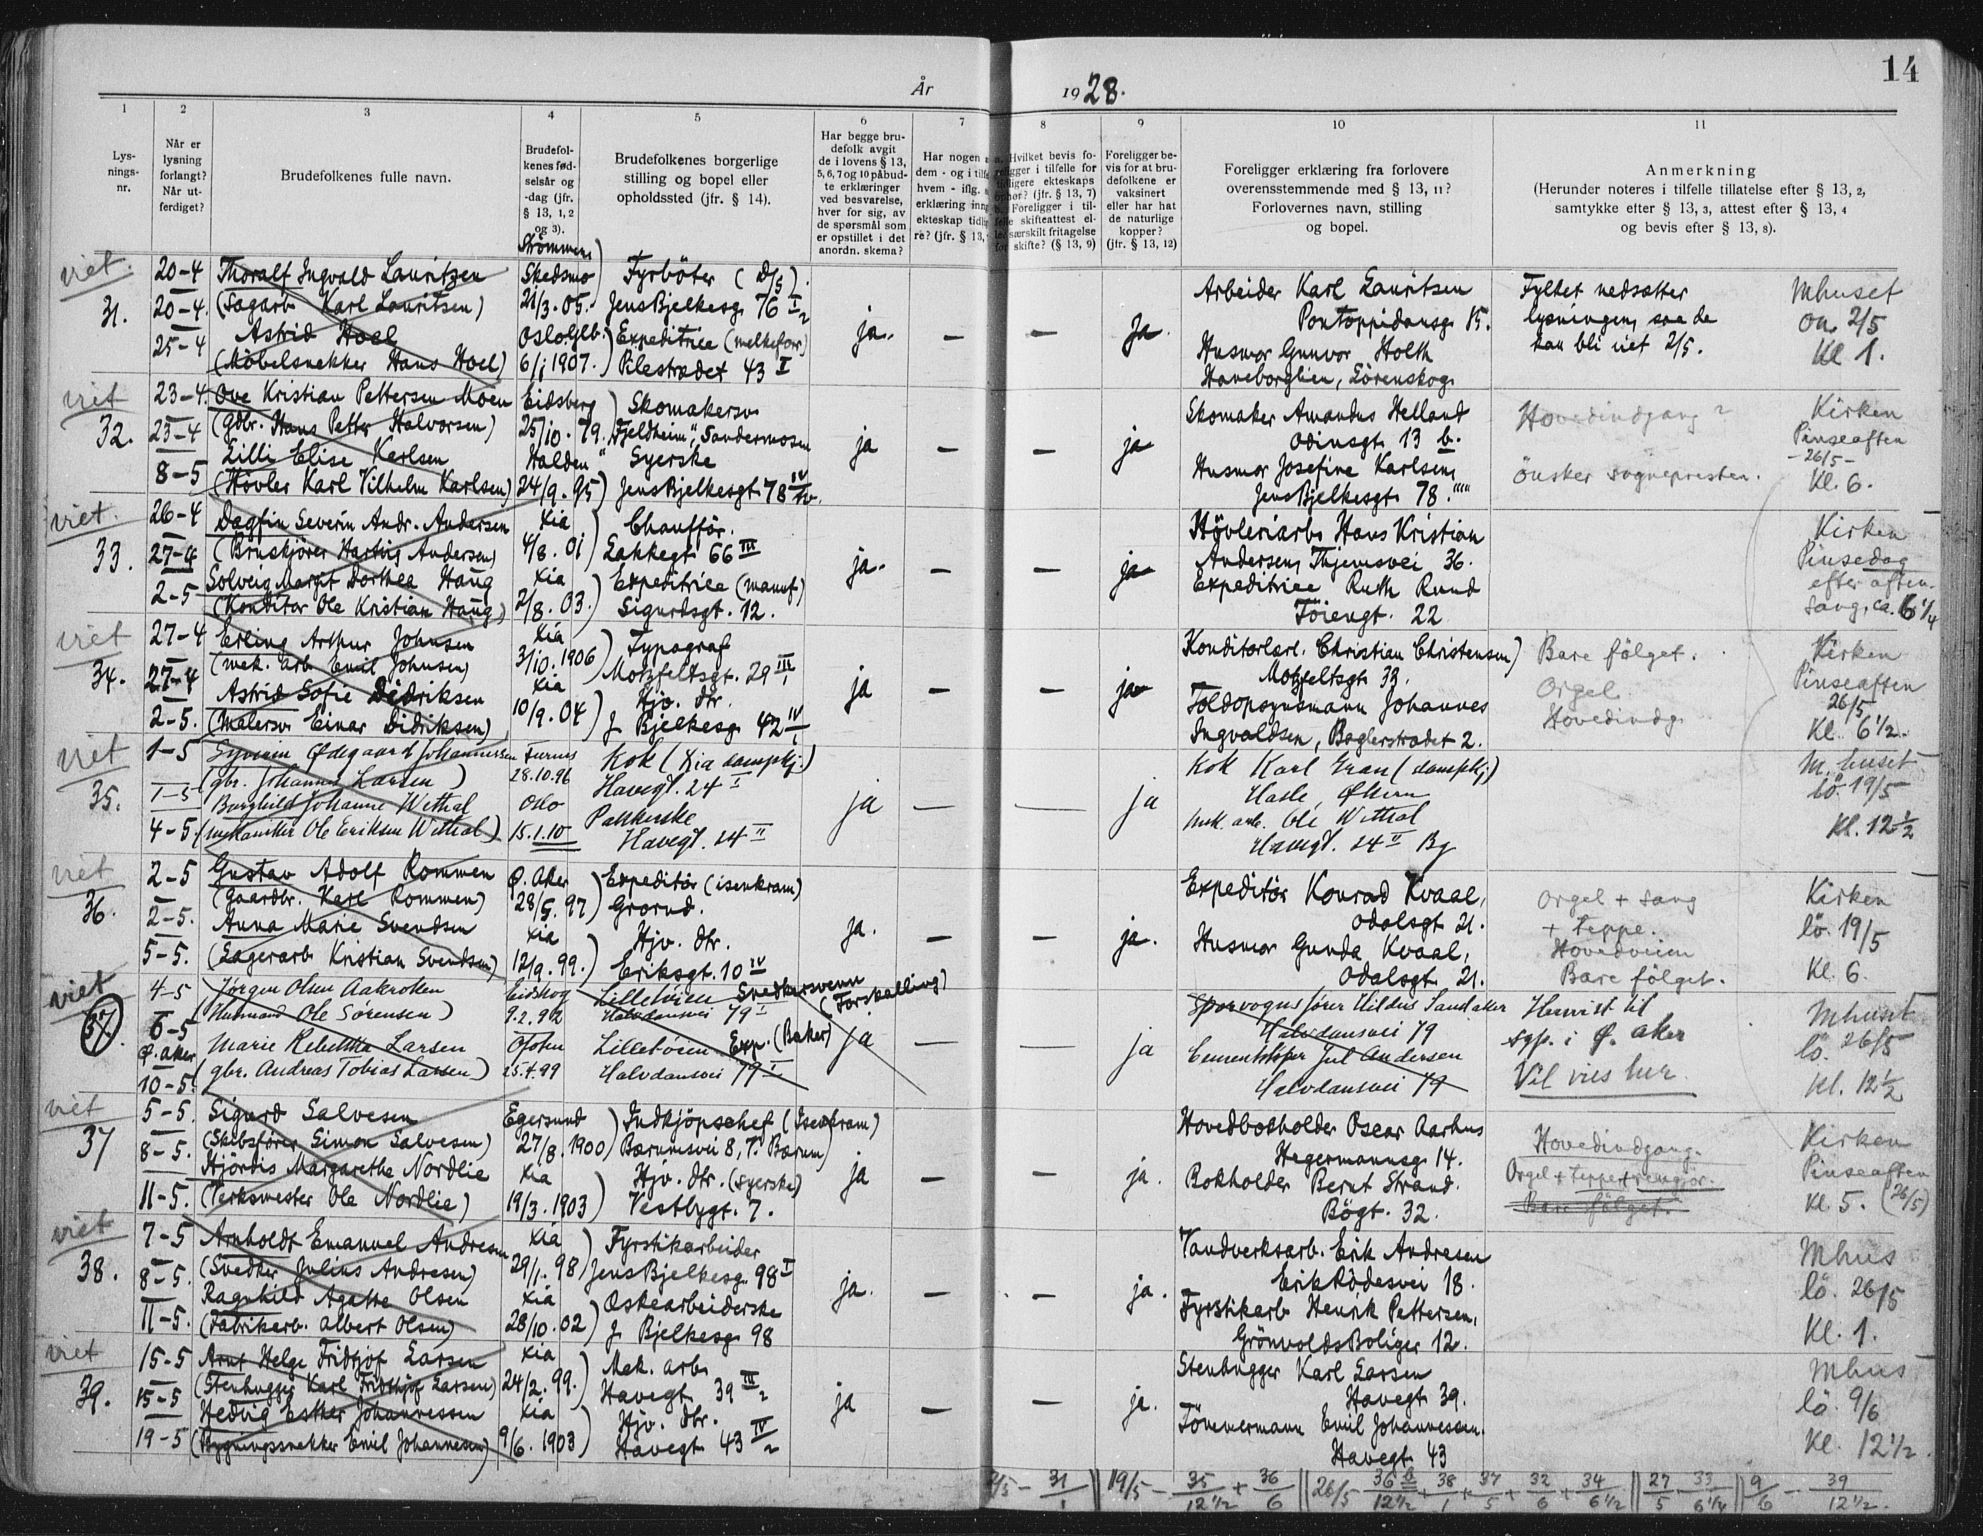 14
År 1928.
1 2 3 4 5 6 7 8 9 10 11
Lys-
nings-
nr.
Når er
lysning
forlangt?
Når ut-
ferdiget?
Brudefolkenes fulle navn.
Brudefol-
kenes fød-
selsår og
-dag (jfr.
§ 13, 1, 2
og 3).
Brudefolkenes borgerlige
stilling og bopel eller
opholdssted (jfr. § 14).
Har begge bru-
defolk avgit
de i lovens § 13,
5, 6, 7 og 10 påbud-
te erklæringer
ved besvarelse,
hver for sig, av
de spørsmål som
er opstillet i det
anordn. skema?
Har nogen a
dem - og i tilfe
hvem - iflg.
erklæring inng
ekteskap tidlig
re? (jfr. § 13,
Hvilket bevis fo-
religger i tilfelle for
tidligere ekteskaps
ophør? (jfr. § 13, 7)
Foreligger i til-
felle skifteattest el-
ler særskilt fritagelse
for skifte? (§ 13, 9)
Foreligger be-
vis for at bru-
defolkene er
vaksinert
eller har hat
de naturlige
kopper?
(jfr. § 13, 12)
Foreligger erklæring fra forlovere
overensstemmende med § 13, 11?
Forlovernes navn, stilling
og bopel.
Anmerkning
(Herunder noteres i tilfelle tillatelse efter § 13, 2,
samtykke efter § 13, 3, attest efter § 13, 4
og bevis efter § 13, 8).
viet.
31.
20-4
20-4.
25-4
Thoralf Ingvald Lauritzen
(Sagarb. Karl Lauritsen)
Astrid Hoel
(Møbelsnekker Hans Hoel)
Strømmen
Skedsmo
21/3. 05.
Oslo Glb.
6/1 1907.
Fyrböter (D/S).
Jens Bjelkesg. 76 I
Expeditrice (melkeforr)
Pilestrædet 43 I
ja.
—
—
ja
Arbeider Karl Lauritsen
Pontoppidansg. 15.
Husmor Gunvor Holth
Haneborglien, Lörenskog
Fylket nedsætter
lysningen, saa de
kan bli viet 2/5.
Mhuset
on. 2/5
Kl 1.
viet
32.
23-4.
23-4
8-5
Ove Kristian Pettersen Moen
(gdbr. Hans Petter Halvorsen)
Lilli Elise Karlsen
(Hövler Karl Vilhelm Karlsen)
Eidsberg
25/10. 79.
Halden
24/9. 95
Skomakersv.
"Fjeldheim", Sandermosen
Syerske
Jens Bjelkesgt 78 IV
ja
—
—
ja
Skomaker Amandus Helland
Odinsgt. 13 b.
Husmor Josefine Karlsen,
Jens Bjelkesgt. 78. ""
Hovedindgang?
önsker sognepresten.
Kirken
Pinseaften
-26/5-
Kl. 6.
viet.
33.
26-4
27-4
2-5
Dagfin Severin Andr. Andersen
(Bruskjörer Hartvig Andersen)
Solveig Margit Dorthea Haug
(Konditor Ole Kristian Haug)
Xia
4/8. 01
Xia
2/8. 03.
Chauffør.
Lakkegt. 66 III
Expeditrice (manuf)
Sigurdsgt. 12.
ja.
—
—
ja
Hövleriarb. Hans Kristian
Andersen, Thjemsvei 36.
Expeditrice Ruth Rund
Töiengt. 22
Kirken
Pinsedag
efter aften-
sang, ca. 6 1/4
viet
34.
27-4
27-4
2-5.
Erling Arthur Johnsen
(mek. arb. Emil Johnsen)
Astrid Sofie Didriksen
(Malersv. Einar Didriksen)
Xia
3/10. 1906
Xia
10/9. 04
Typograf
Motzfeltsgt. 29 III
Hjv. dtr.
J. Bjelkesg. 42 IV
ja
—
—
ja
Konditorlærl. Christian Christensen)
Motzfeltsgt 33.
Toldopsynsmann Johannes
Ingvaldsen, Baglerstrædet 2.
Bare fölget.
Orgel.
Hovedindg.
Kirken
Pinseaften
26/5
Kl. 6 1/2.
viet
35.
1-5
1-5
4-5
Syvern Ødegaard Johannessen
(gbr. Johannes Larsen)
Borghild Johanne Wethal
(Ole Eriksen Wethal)
Furnes
28.10.96
Oslo
15.1.10
Kok (Xia dampkj.)
Havegt. 24 I
Pakkerske
Havegt. 24 II
ja
—
—
ja
Kok Karl Gran (dampkj.)
Hasle, Økern
Mek. arb. Ole Wethal
Havegt. 24 II Bg
M. huset
lö. 19/5
Kl. 12 1/2
viet
36.
2-5
2-5.
5-5.
Gustav Adolf Rommen
(Gaardbr. Karl Rommen)
Anna Marie Svendsen
(Lagerarb. Kristian Svendsen)
Ø. Aker
28/5. 97
Xia
12/9. 99.
Expeditör (isenkram)
Grorud.
Hjv. dtr.
Eriksgt. 10 IV
ja.
—
—
ja.
Expeditör Konrad Kvaal,
Odalsgt 21.
Husmor Gunda Kvaal,
Odalsgt 21.
Orgel + sang
+ teppe.
Hovedveien
Bare fölget.
Kirken
lö. 19/5
Kl. 6.
viet
37.
4-5
6-5
Ø. aker
10-5.
Jørgen Olsen Aakroken
(Husmand Ole Sörensen)
Marie Rebekka Larsen
(gbr. Andreas Tobias Larsen)
Eidskog
9.2.92
Ofoten
25.4.99
Lilletöien Snedkersvenn
Halvdansvei 79 I (Forskalling)
Lilletöien Exp. (Baker)
Halvdansvei 79 I
ja
—
—
ja
Sporvognsfører Hildus Sandaker
Halvdansvei 79
Cementstøper Jul Andersen
Halvdansvei 79
Henvist til
sgp. i Ø. aker
Vil vies her.
Mhuset
lö. 26/5
kl. 12 1/2
viet
37
5-5.
8-5.
11-5.
Sigurd Salvesen
(Skibsfører Simon Salvesen)
Hjördis Margarethe Nordlie
(Verksmester Ole Nordlie)
Egersund
27/8. 1900
Xia
19/3. 1903
Indkjöpschef (Isenkram)
Bærumsvei 8, V. Bærum
Hjv. dtr. (syerske)
Vestbygt. 7.
ja
—
—
ja.
Hovedbokholder Oscar Aarhus
Hegermannsg. 14.
Bokholder Bernt Strand.
Bögt. 32.
Hovedindgang.
Orgel + teppe + rengjör.
Bare fölget.
Kirken
Pinseaften
Kl. 5. (26/5)
viet
38.
7-5
8-5.
11-5.
Arnholdt Emanuel Andresen
(Svedker Julius Andresen)
Ragnhild Agathe Olsen
(Fabrikarb. Albert Olsen)
Xia
29/1. 98
Xia
28/10. 02
Fyrstikarbeider
Jens Bjelkesg. 98 I
Æskearbeiderske
J. Bjelkesg. 98
ja.
—
—
ja.
Vandverksarb. Erik Andresen
Erik Rödesvei 18.
Fyrstikarb. Henrik Pettersen,
Grönvolds Boliger 12.
Mhus
lö. 26/5
Kl. 1.
viet
39.
15-5
15-5
19-5
Arnt Helge Fridtjof Larsen
(Stenhugger Karl Fridthjof Larsen)
Hedvig Esther Johannessen
(Bygningssnekker Emil Johannesen)
Xia
24/2. 99.
Xia
9/6. 1903
Mek. arb.
Havegt. 39 III
Hjv. dtr.
Havegt. 43 IV
ja
—
—
ja.
Stenhugger Karl Larsen
Havegt. 39.
Tömmermann Emil Johannessen.
Havegt. 43
Mhus
lö. 9/6
Kl. 12 1/2.
2/5 - 31/1 || 19/5 - 35/12 1/2 + 36/6 || 26/5 36 b/12 1/2 + 38/1 + 37/5 + 32/6 + 34/6 1/2 || 27/5 33/6 1/4 || 9/6 - 39/12 1/2.